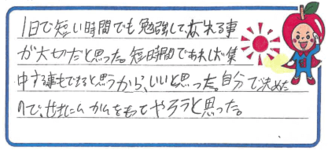 1日で短い時間でも勉強して忘れる事
が大切だと思った。短時間であれば集
中する事もできると思うから、いいと思った。自分で決めた
ので、せきにんかんをもってやろうと思った。